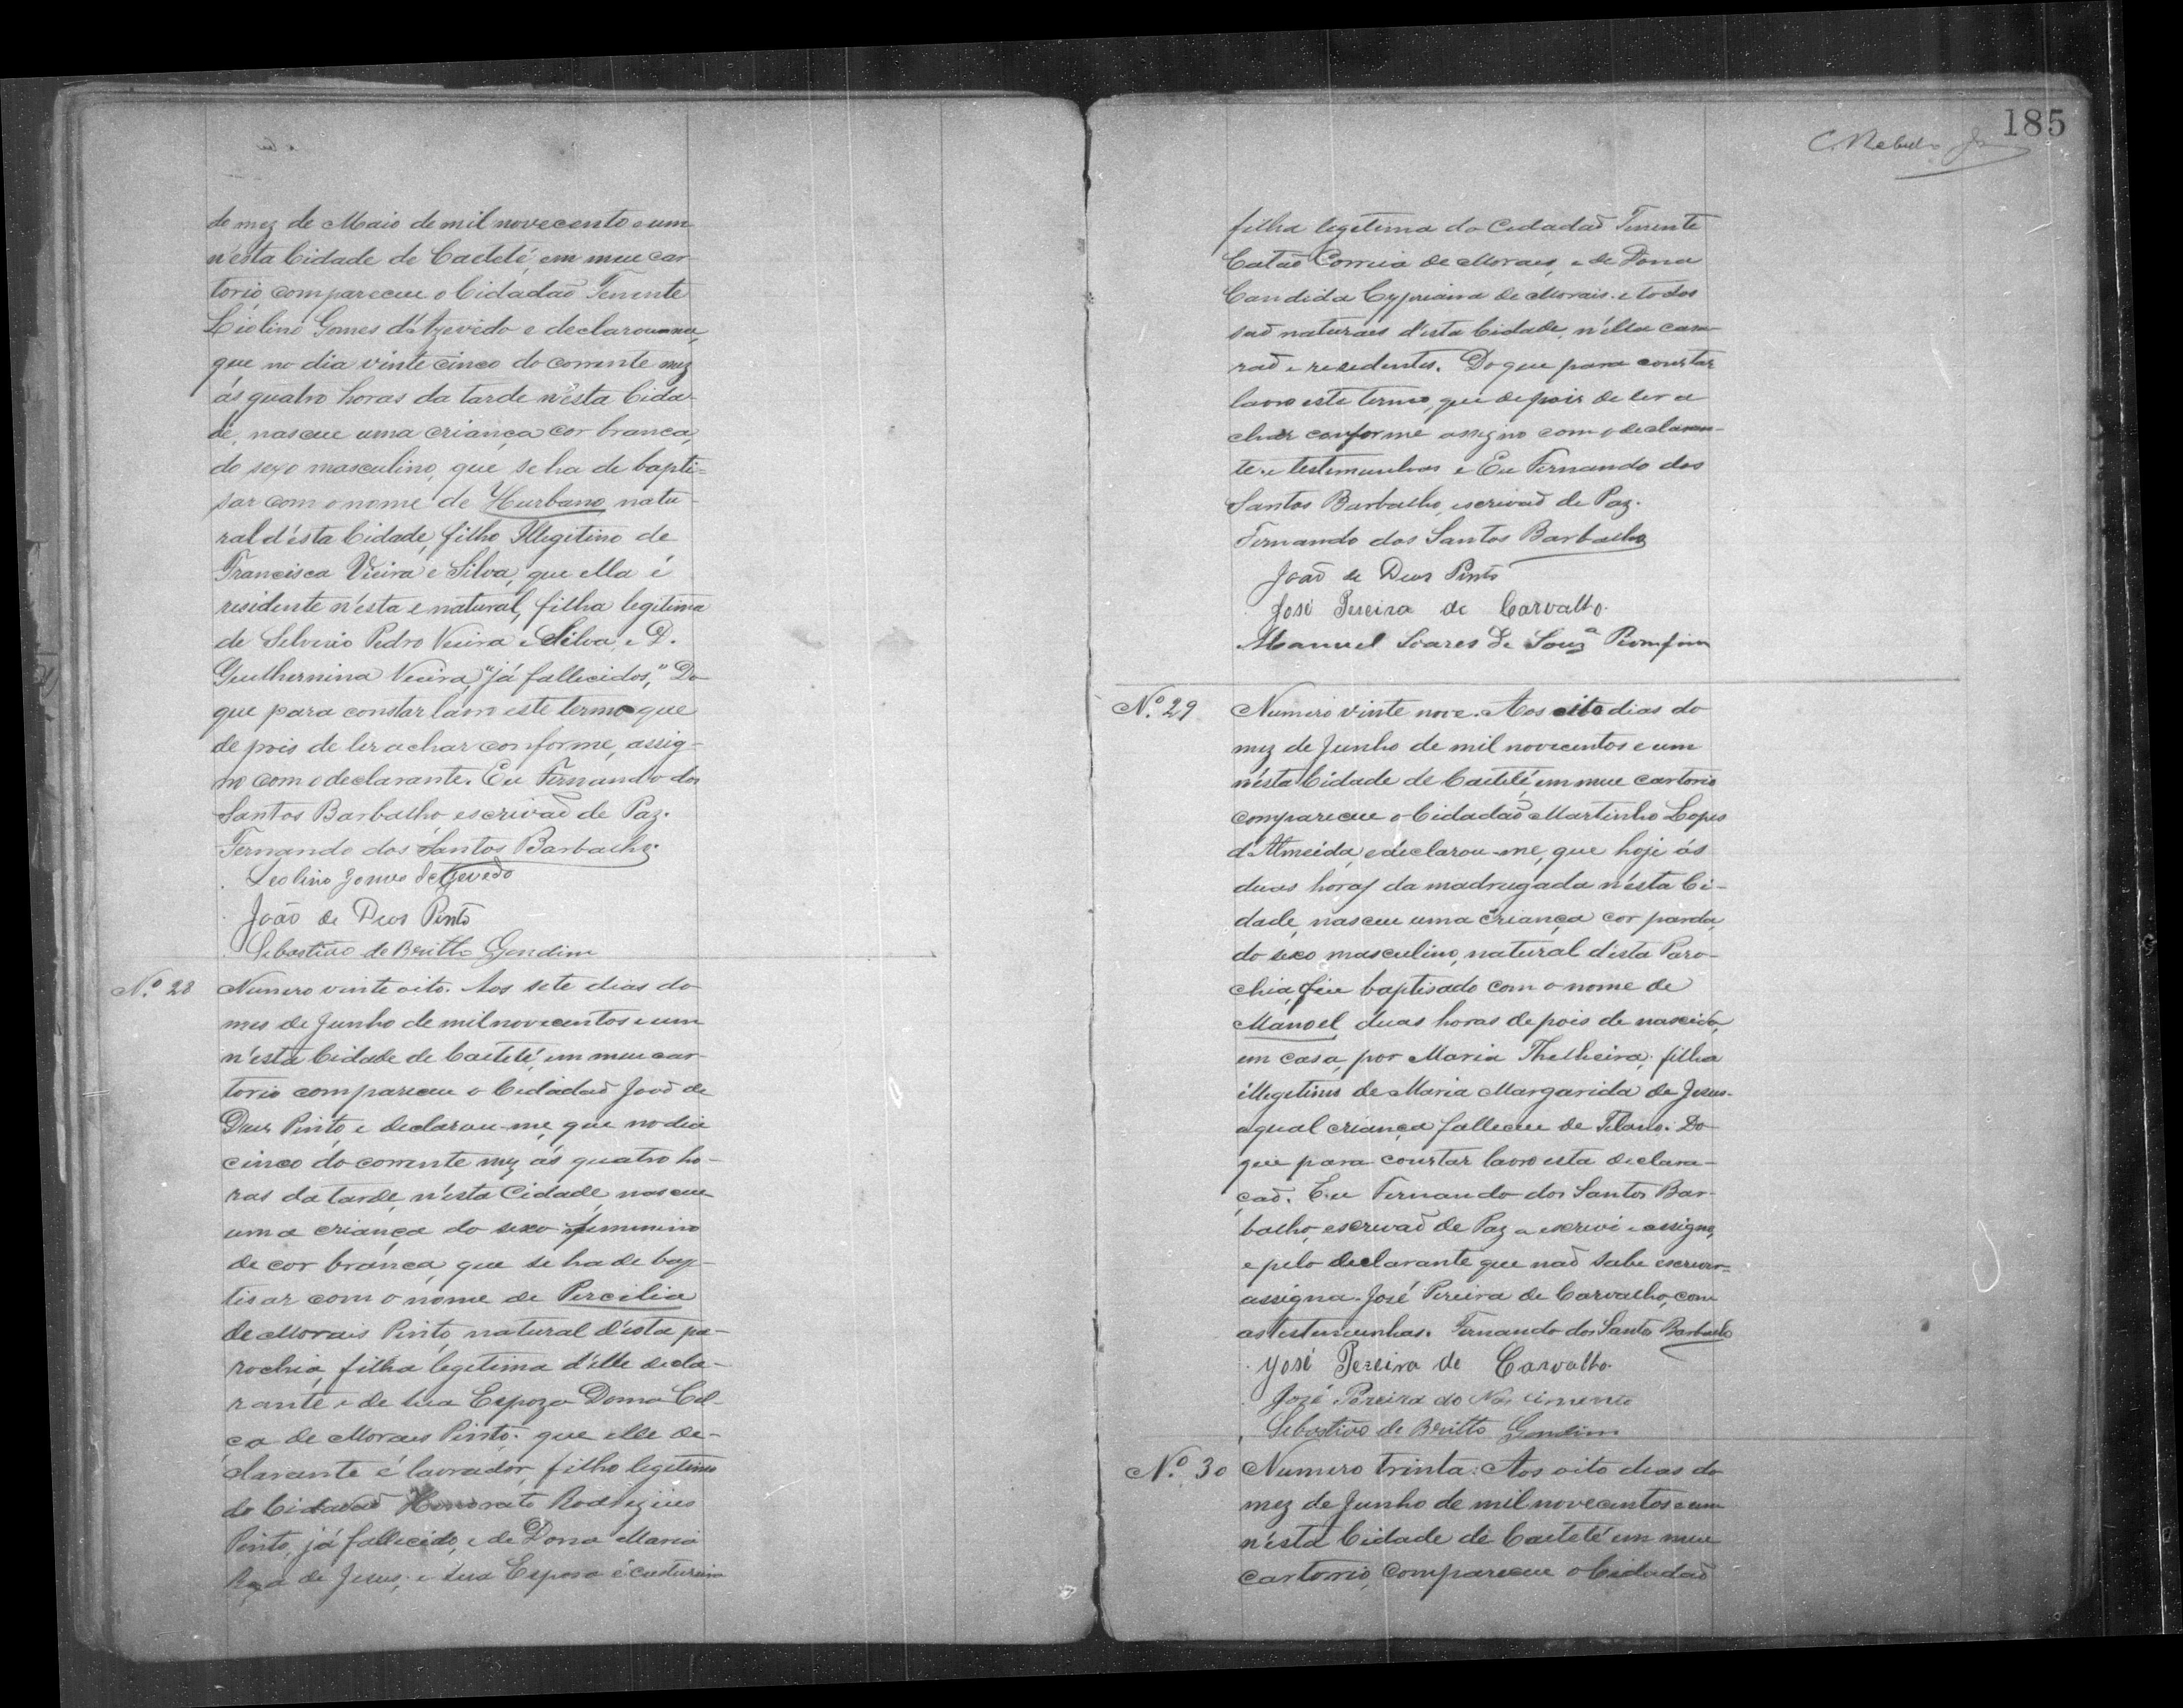 de mez de Maio de mil novecento e um
n'esta Cidade de Caeteté, em meu car-
torio compareceu o Cidadaõ Tenente
Liolino Gomes d'Azevedo e declarou-me,
que no dia vinte cinco do corrente mez
ás quatro horas da tarde n'esta Cida-
de, nasceu uma criança cor branca,
do sexo masculino, que se ha de bapti-
sar com o nome de Hurbano, natu-
ral d'esta Cidade, filho Illegitimo de
Francisca Vieira e Silva, que ella é
residente n'esta e natural, filha legitima
de Selverio Pedro Vieira e Silva, e D.
Guilhermina Vieira, "já fallecidos," Do
que para constar lavro este termo que
depois de ler achar conforme, assig-
no com o declarante. Eu Fernando dos
Santos Barbalho escrivaõ de Paz.
Fernando dos Santos Barbalho.
Leolino Gomes de Azevedo
João de Deos Pinto
Sebastião de Britto Gondim
Nº. 28 Numero vinte oito. Aos sete dias do
mes de Junho de mil novecentos e um
n'esta Cidade de Caeteté, em meu car-
torio compareceu o Cidadaõ Joaõ de
Deus Pinto e declarou-me, que no dia
cinco do corrente mez ás quatro ho-
ras da tarde, n'esta Cidade, nasceu
uma criança do sexo femenino
de cor branca, que se ha de bap-
tisar com o nome de Percilia
de Morais Pinto, natural d'esta pa-
rochia, filha legitima d'elle decla-
rante e de sua Espoza Dona Cil-
ca de Moraes Pinto: que elle de-
clarante é lavrador, filho legitimo
do Cidadaõ Honorato Rodrigues
Pinto, já fallecido, e de Dona Maria
Roza de Jesus; e sua Esposa é custureira
185
C. Rebello Jr
filha legitima do Cidadaõ Tenente
Cataõ Correia de Moraes, e de Dona
Candida Cypriana de Morais. e todos
saõ naturaes d'esta Cidade, n'ella casa-
raõ e residentes. Do que para constar
lavro este termo, que depois de ler a
char conforme assigno com o declaran-
te. e testemunhas e Eu Fernando dos
Santos Barbalho, escrivaõ de Paz.
Fernando dos Santos Barbalho
Joaõ de Deos Pinto
José Pereira de Carvalho.
Manuel Soares de Souzª Bomfim
Nº. 29 Numero vinte nove. Aos oito dias do
mez de Junho de mil novecentos e um
n'esta Cidade de Caeteté, em meu cartorio
compareceu o Cidadaõ Martinho Lopes
d'Almeida, e declarou-me, que hoje ás
duas horas da madrugada n'esta Ci-
dade, nasceu uma criança cor parda,
do sexo masculino, natural d'esta Paro-
chia, foi baptisado com o nome de
Manoel, duas horas depois de nascido,
em casa, por Maria Thelheira; filho
illegitimo de Maria Margarida de Jesus.
a qual criança falleceu de Tetano. Do
que para constar lavro esta declara-
çaõ. Eu Fernando dos Santos Bar-
balho, escrivaõ de Paz a escrevi e assigno,
e pelo declarante que naõ sabe escrever
assigna José Pereira de Carvalho, com
as testemunhas. Fernando dos Santos Barbalho
José Pereira de Carvalho.
José Pereira do Nascimento
Sebastião de Britto Gondim
Nº. 30 Numero trinta: Aos oito dias do
mez de Junho de mil novecentos e um
n'esta Cidade de Caeteté em meu
cartorrio, compareceu o Cidadaõ